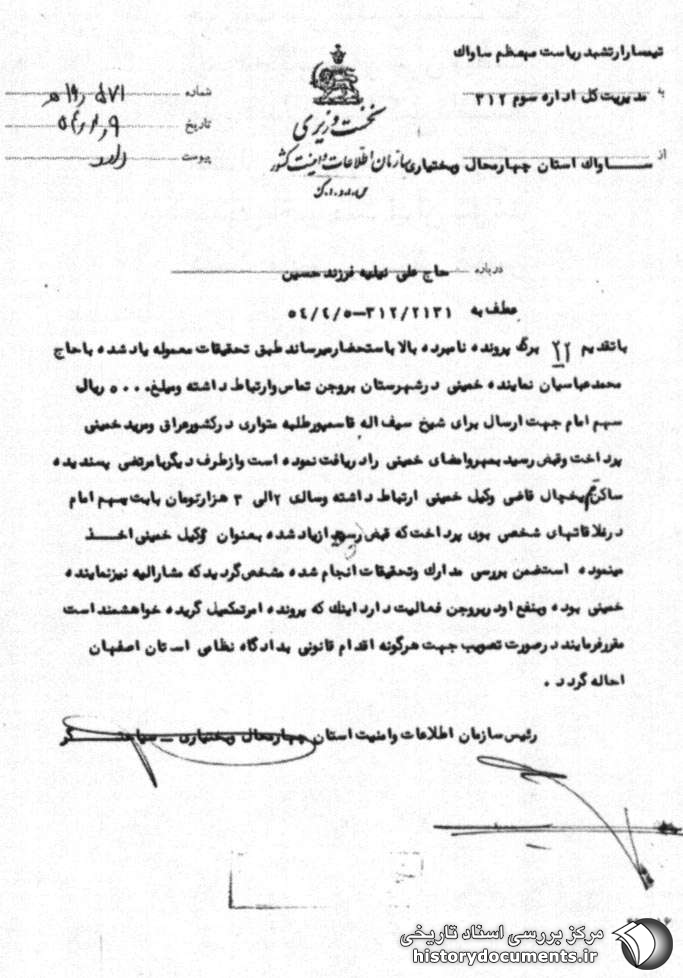 تیمسار ارتشبد ریاست معظم ساواک
به مدیریت کل اداره سوم ۳۱۲
از ســـاواک استان چهارمحال وبختیاری
نخست وزیری
سازمان اطلاعات و امنیت کشور
س.ا.و.ا.ک
شماره
تاریخ
پیوست دارد
درباره حاج علی نیلیه فرزند حسین
عطف به ۳۱۲/۲۱۳۱-۵٤/٤/۵
باتقدیم ۲۲ برگ پرونده نامبرده بالا باستحضار میرساند طبق تحقیقات معموله یاد شده با حاج
محمد عباسیان نماینده خمینی در شهرستان بروجن تماس وارتباط داشته ومبلغ ۵۰۰۰ ریال
سهم امام جهت ارسال برای شیخ سیف اله قاسمپور طلبه متواری درکشورعراق ومرید خمینی
پرداخت وقبض رسید بمهر وامضای خمینی را دریافت نموده است وازطرف دیگربا مرتضی پسندیده
ساکن قم یخچال قاضی وکیل خمینی ارتباط داشته وسالی ۲الی ۳ هزارتومان بابت سهم امام
درملاقاتهای شخصی بوی پرداخت که قبض رسید ازیاد شده بعنوان وکیل خمینی اخـــذ
مینموده استضمن بررسی مدارک وتحقیقات انجام شده مشخص گردید که مشارالیه نیزنماینده
خمینی بوده وبنفع اود ربروجن فعالیت دارد اینک که پرونده امرتکمیل گردیده خواهشمند است
مقررفرمایند درصورت تصویب جهت هرگونه اقدام قانونی بدادگاه نظامی استان اصفهان
احاله گردد .
رئیس سازمان اطلاعات وامنیت استان چهارمحال وبختیاری
مرکز بررسی اسناد تاریخی
historydocuments.ir